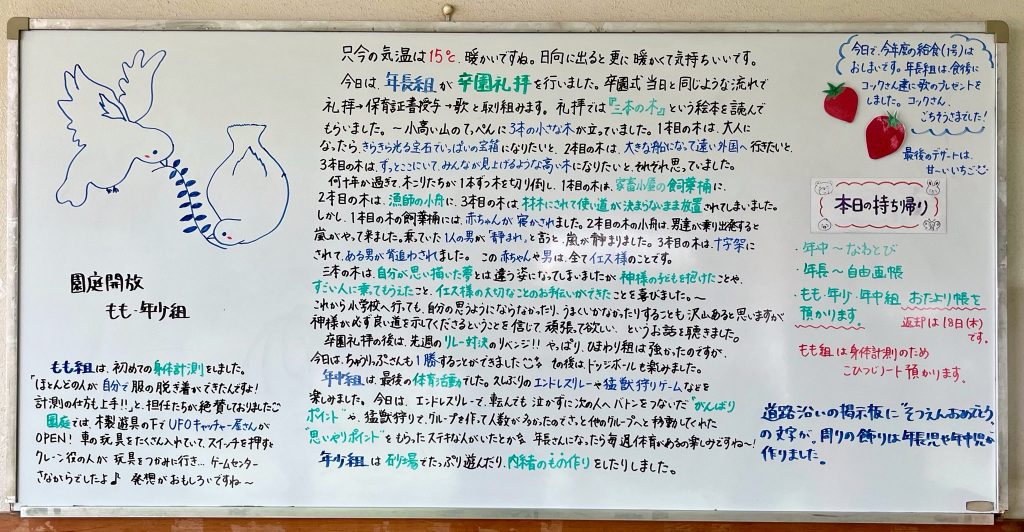 園庭開放
もも・年少組
もも組は、初めての身体計測をしました。
「ほとんどの人が自分で服の脱ぎ着ができたんですよ!
計測の仕方も上手!!」と、担任たちが絶賛しておりました
園庭では、木製遊具の下でUFOキャッチャー屋さんが
OPEN! 車の玩具をたくさん入れていて、スイッチを押すと
クレーン役の人が玩具をつかみに行き… ゲームセンター
さながらでしたよ♪ 発想がおもしろいですね～
只今の気温は15℃、暖かいですね。日向に出ると更に暖かくて気持ちいいです。
今日は、年長組が卒園礼拝を行いました。卒園式当日と同じような流れで
礼拝→保育証書授与→歌と取り組みます。礼拝では『三本の木』という絵本を読んで
もらいました。～小高い山のてっぺんに3本の小さな木が立っていました。1本目の木は、大人に
なったら、きらきら光る宝石でいっぱいの宝箱になりたいと、2本目の木は、大きな船になって遠い外国へ行きたいと、
3本目の木は、ずっとここにいて、みんなが見上げるような高い木になりたいと、それぞれ思っていました。
何十年か過ぎて、木こりたちが1本ずつ木を切り倒し、1本目の木は、家畜小屋の飼葉桶に、
2本目の木は、漁師の小舟に、3本目の木は、材木にされて使い道が決まらないまま放置されてしまいました。
しかし、1本目の木の飼葉桶には、赤ちゃんが寝かされました。2本目の木の小舟は、男達が乗り出発すると
嵐がやって来ました。乗っていた1人の男が「静まれ」と言うと、嵐が静まりました。3本目の木は、十字架に
されて、ある男が背追わされました。この赤ちゃんや男は、全てイエス様のことです。
三本の木は、自分が思い描いた夢とは違う姿になってしまいましたが神様の子どもを抱けたことや、
すごい人に乗ってもらえたこと、イエス様の大切なことのお手伝いができたことを喜びました。～
これから小学校へ行っても、自分の思うようにならなかったり、うまくいかなかったりすることも沢山あると思いますが
神様が必ず良い道を示してくださるということを信じて、頑張って欲しい、というお話を聴きました。
卒園礼拝の後は、先週のリレー対決のリベンジ!! やっぱり、ひまわり組は強かったのですが、
今日は、ちゅうりっぷさんも1勝することができました その後は、ドッジボールも楽しみました。
年中組は、最後の体育活動でした。久しぶりのエンドレスリレーや猛獣狩りゲームなどを
楽しみました。今日は、エンドレスリレーで、転んでも泣かずに次の人へバトンをつないだ"がんばり
ポイント"や、猛獣狩りで、グループを作って人数が多かったので、さっと他のグループへと移動してくれた
"思いやりポイント"をもらったステキな人がいたとか 年長さんになったら毎週体育があるの楽しみですね～!
年少組は砂場でたっぷり遊んだり、内緒のもの作りをしたりしました。
今日で、今年度の給食(1号)は
おしまいです。年長組は、食後に
コックさん達に歌のプレゼントを
しました。コックさん、
ごちそうさまでした!
最後のデザートは、
甘ーいいちご
本日の持ち帰り
・年中～なわとび
・年長～自由画帳
・もも・年少・年中組 おたより帳を
預かります。
返却は18日(木)
です。
もも組は身体計測のため
こひつじノート預かります。
道路沿いの掲示板に"そつえんおめでとう"
の文字が。周りの飾りは年長児や年中児が
作りました。